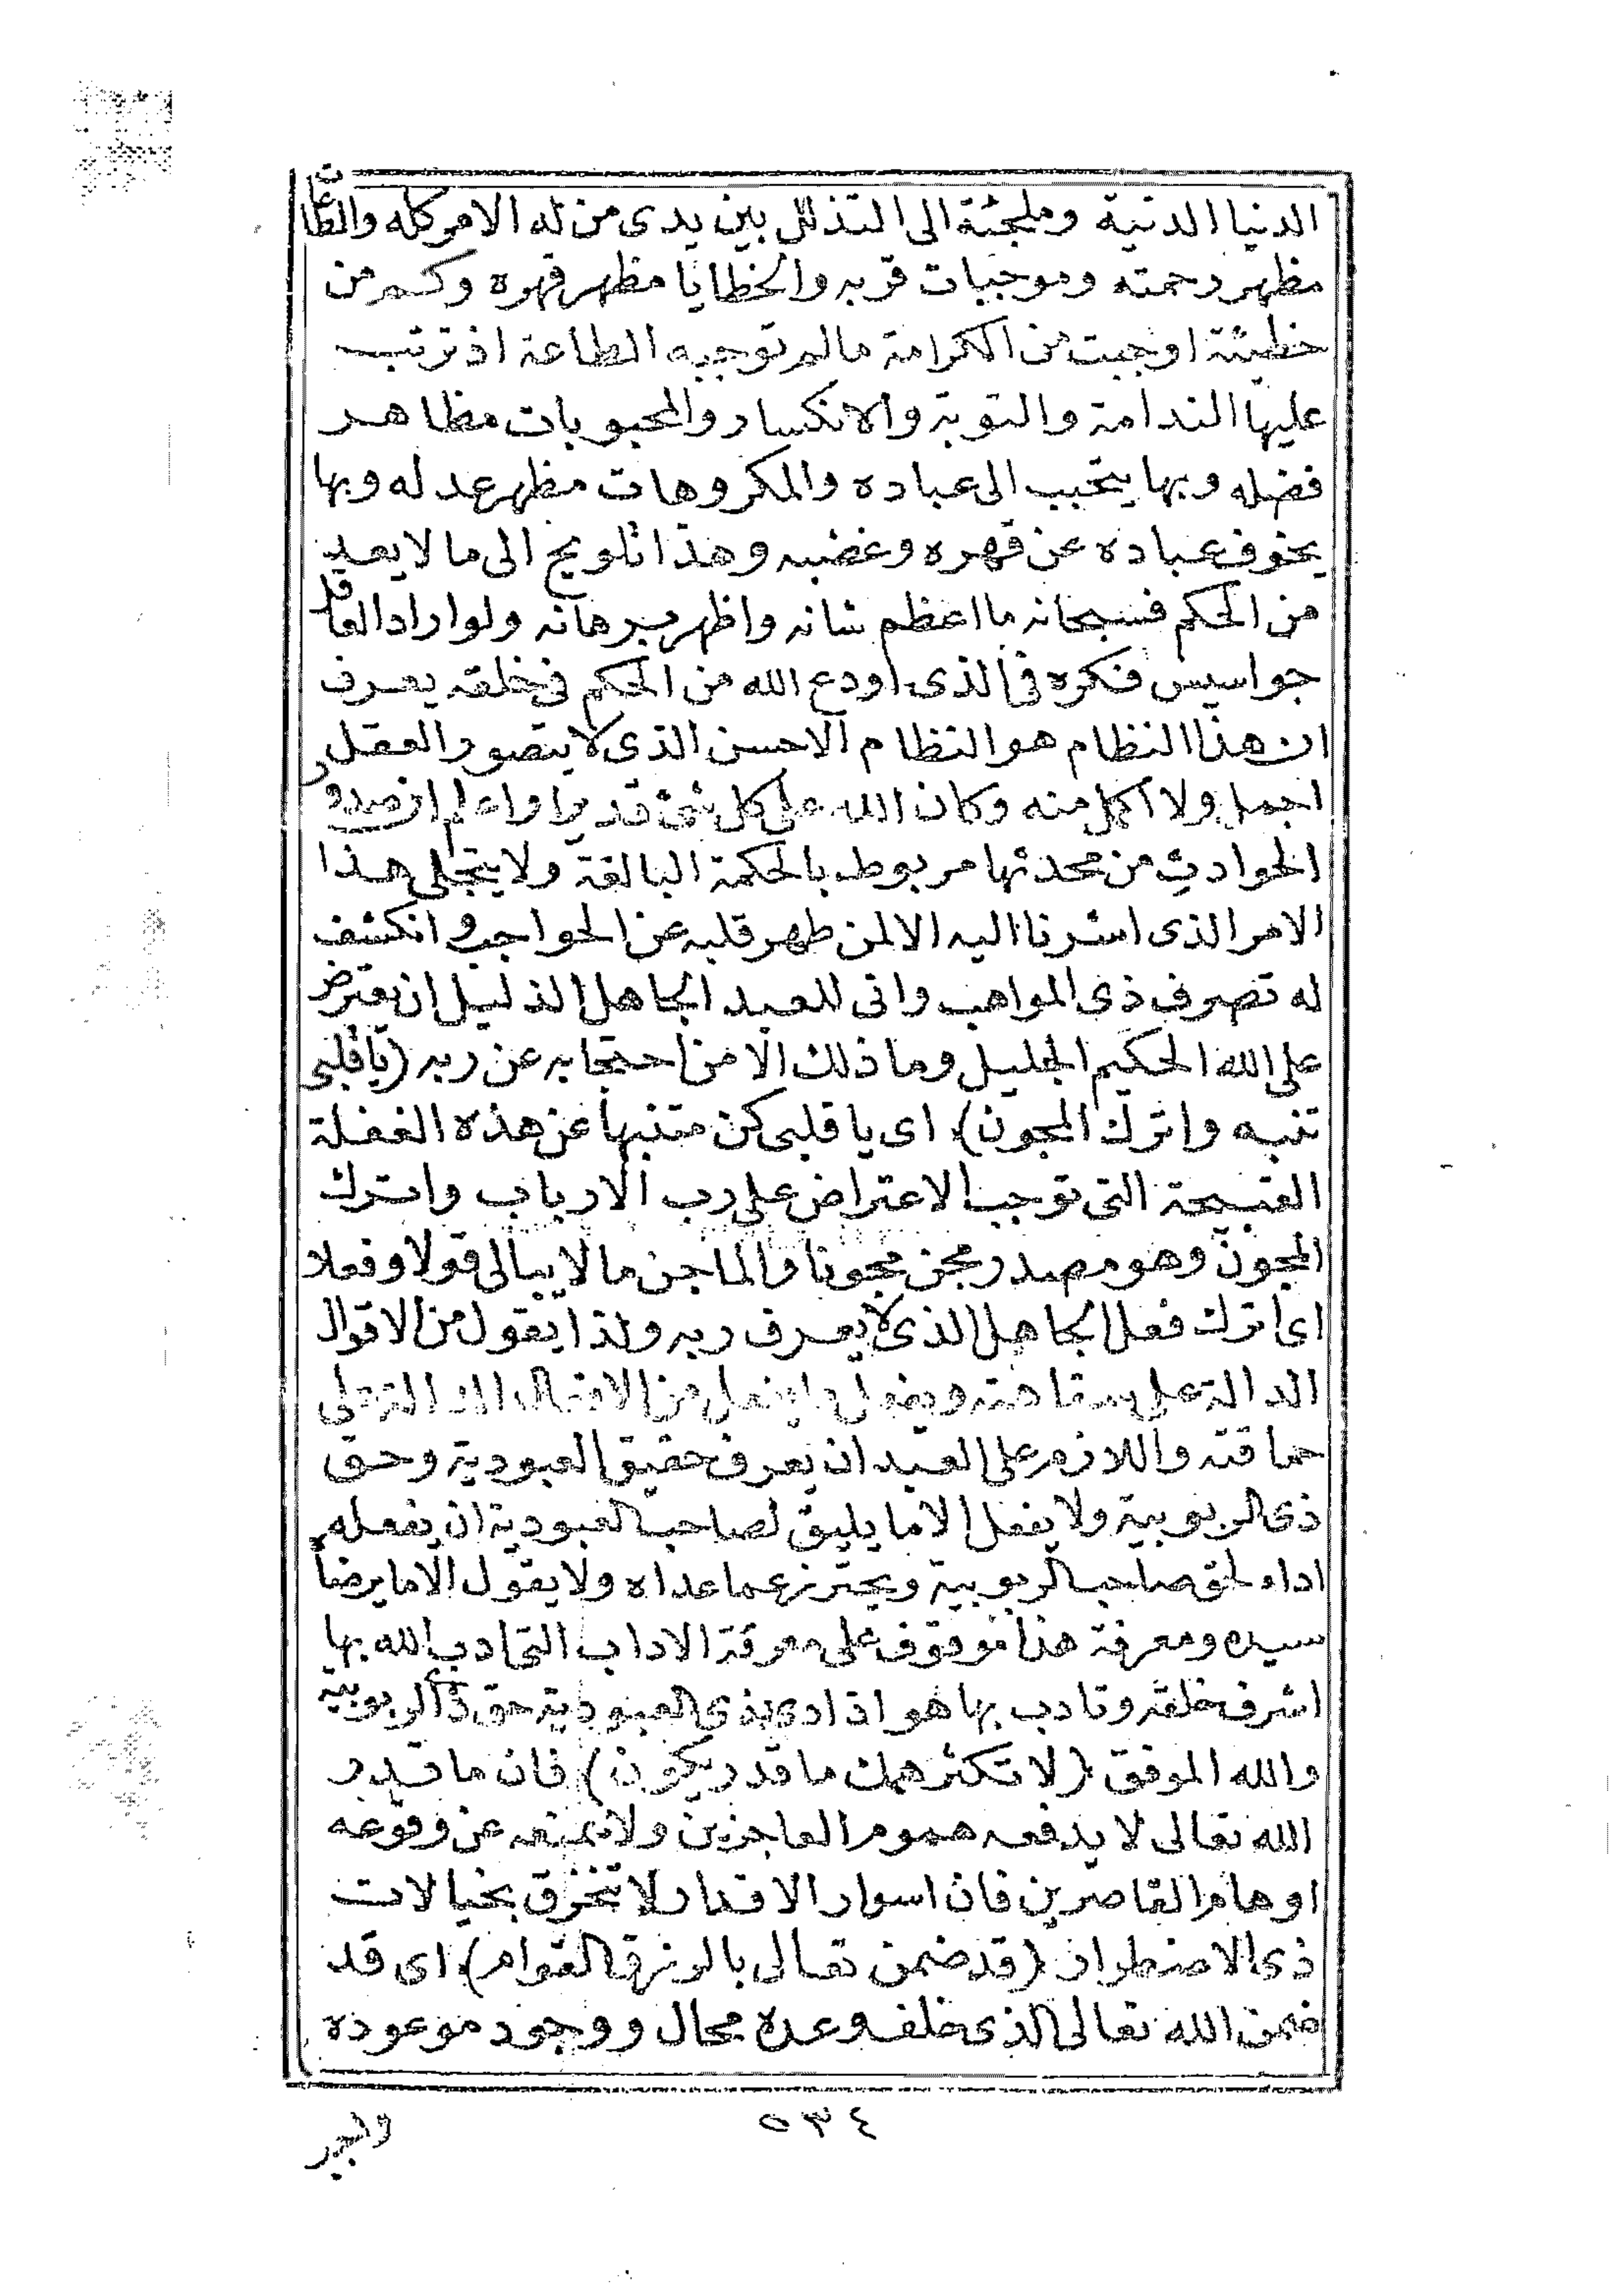 الدنيا الدنية وملجئة الى التذلل بين يدى من له الامر كله والطاعات
مظهر رحمته وموجبات قربه والخطايا مظهر قهره وكم من
خطيئة اوجبت من الكرامة مالم توجبه الطاعة اذ ترتب
عليها الندامة والتوبة والانكسار والمحبوبات مظاهر
فضله وبها يتحبب الى عباده والمكروهات مظهر عدله وبها
يخوف عباده عن قهره وغضبه وهذا تلويح الى ما لا يعد
من الحكم فسبحانه ما اعظم شانه واظهر برهانه ولو ارادالعاقل
جواسيس فكره فى الذى اودع الله من الحكم فى خلقه يعرف
ان هذا النظام هو النظام الاحسن الذى لا يتصور العقل
اجمل ولا اكمل منه وكان الله على كل شئ قديرا واعلم ان صدور
الحوادث من محدثها مربوط بالحكمة البالغة ولا يتجلى هذا
الامر الذى اشرنا اليه الا لمن طهر قلبه عن الحواجب وانكشف
له تصرف ذى المواهب وانى للعبد الجاهل الذليل ان يعترض
على الله الحكيم الجليل وما ذلك الا من احتجابه عن ربه (يا قلبى
تنبه واترك المجون) اى يا قلبى كن متنبها عن هذه الغفلة
القبيحة التى توجب الاعتراض على رب الارباب واترك
المجون وهو مصدر مجن مجونا والماجن ما لا يبالى قولا وفعلا
اى اترك فعل الجاهل الذى لا يعرف ربه ولذا يقول من الاقوال
الدالة على سفاهته ويفعل ما يفعل من الافعال الدالة على
حماقته واللازم على العبد ان يعرف حقيق العبودية وحق
ذى الربوبية ولا يفعل الا ما يليق لصاحب العبودية ان يفعله
اداء لحق صاحب الربوبية ويحترز عما عداه ولا يقول الا ما يرضاه
سيده ومعرفة هذا موقوف على معرفة الاداب التى ادب الله بها
اشرف خلقه وتادب بها هو اذ ادى بذى العبودية حق ذى الربوبية
والله الموفق (لا تكثر همك ما قدر يكون) فان ما قدر
الله تعالى لا يدفعه هموم العاجزين ولا يمنعه عن وقوعه
اوهام القاصرين فان اسوار الاقدار لا تنخرق بخيالات
ذى الاضطرار (قد ضمن تعالى بالرزق القوام) اى قد
ضمن الله تعالى الذى خلف وعده محال ووجود موعوده
٥٣٤